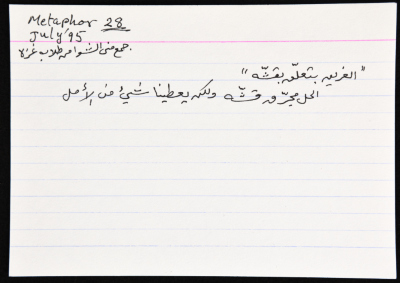 Metaphor 28
July/95
جمع منى الشوا من طلاب غزة.
"الغريق بتعلّق بقشّه"
الحل مجرّد قشّه ولكنه يعطينا شيئ من الأمل